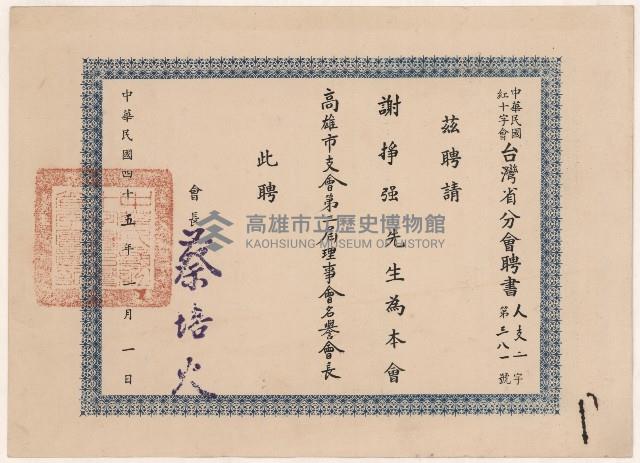 中華民國
紅十字會
台灣省分會聘書
人支二字
第三八一號
茲聘請
謝掙强先生為本會
高雄市支會第一屆理事會名譽會長
此聘
會長
蔡培火
中華民國四十五年一月一日
高雄市立歷史博物館
KAOHSIUNG MUSEUM OF HISTORY